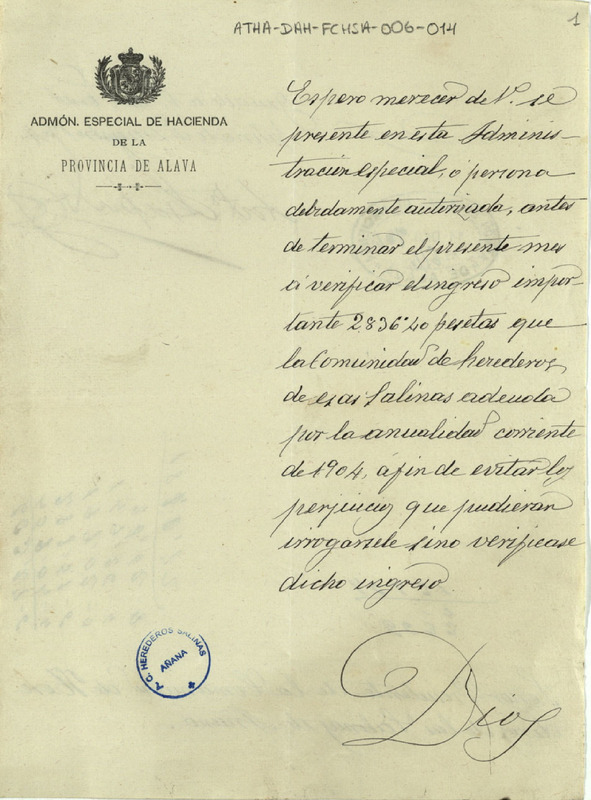 ATHA-DAH-FCHSA-006-014
1
ADMÓN. ESPECIAL DE HACIENDA
DE LA
PROVINCIA DE ALAVA
Espero merecer de V. se
presente en esta Adminis-
tración especial, ó persona
debidamente autorizada, antes
de terminar el presente mes
á verificar el ingreso impor-
tante 2.836'40 pesetas que
la Comunidad de herederos
de esas Salinas adeuda
por la anualidad corriente
de 1904, á fin de evitar los
perjuicios que pudieran
irrogarsele sino verificase
dicho ingreso
Dios
HEREDEROS SALINAS
AÑANA